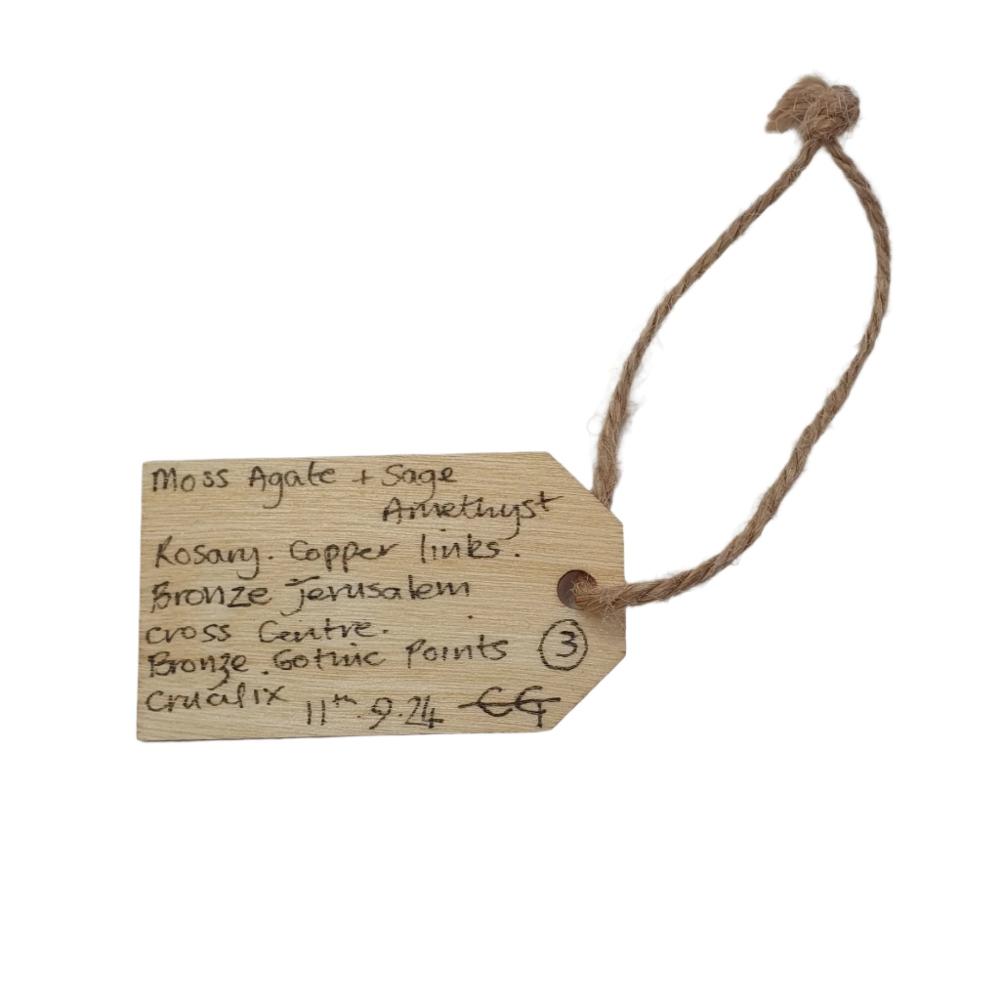 Moss Agate + Sage
Amethyst
Rosary. Copper links.
Bronze Jerusalem
cross Centre.
Bronze Gothic Points
Crucifix
3
11th.9.24 CG